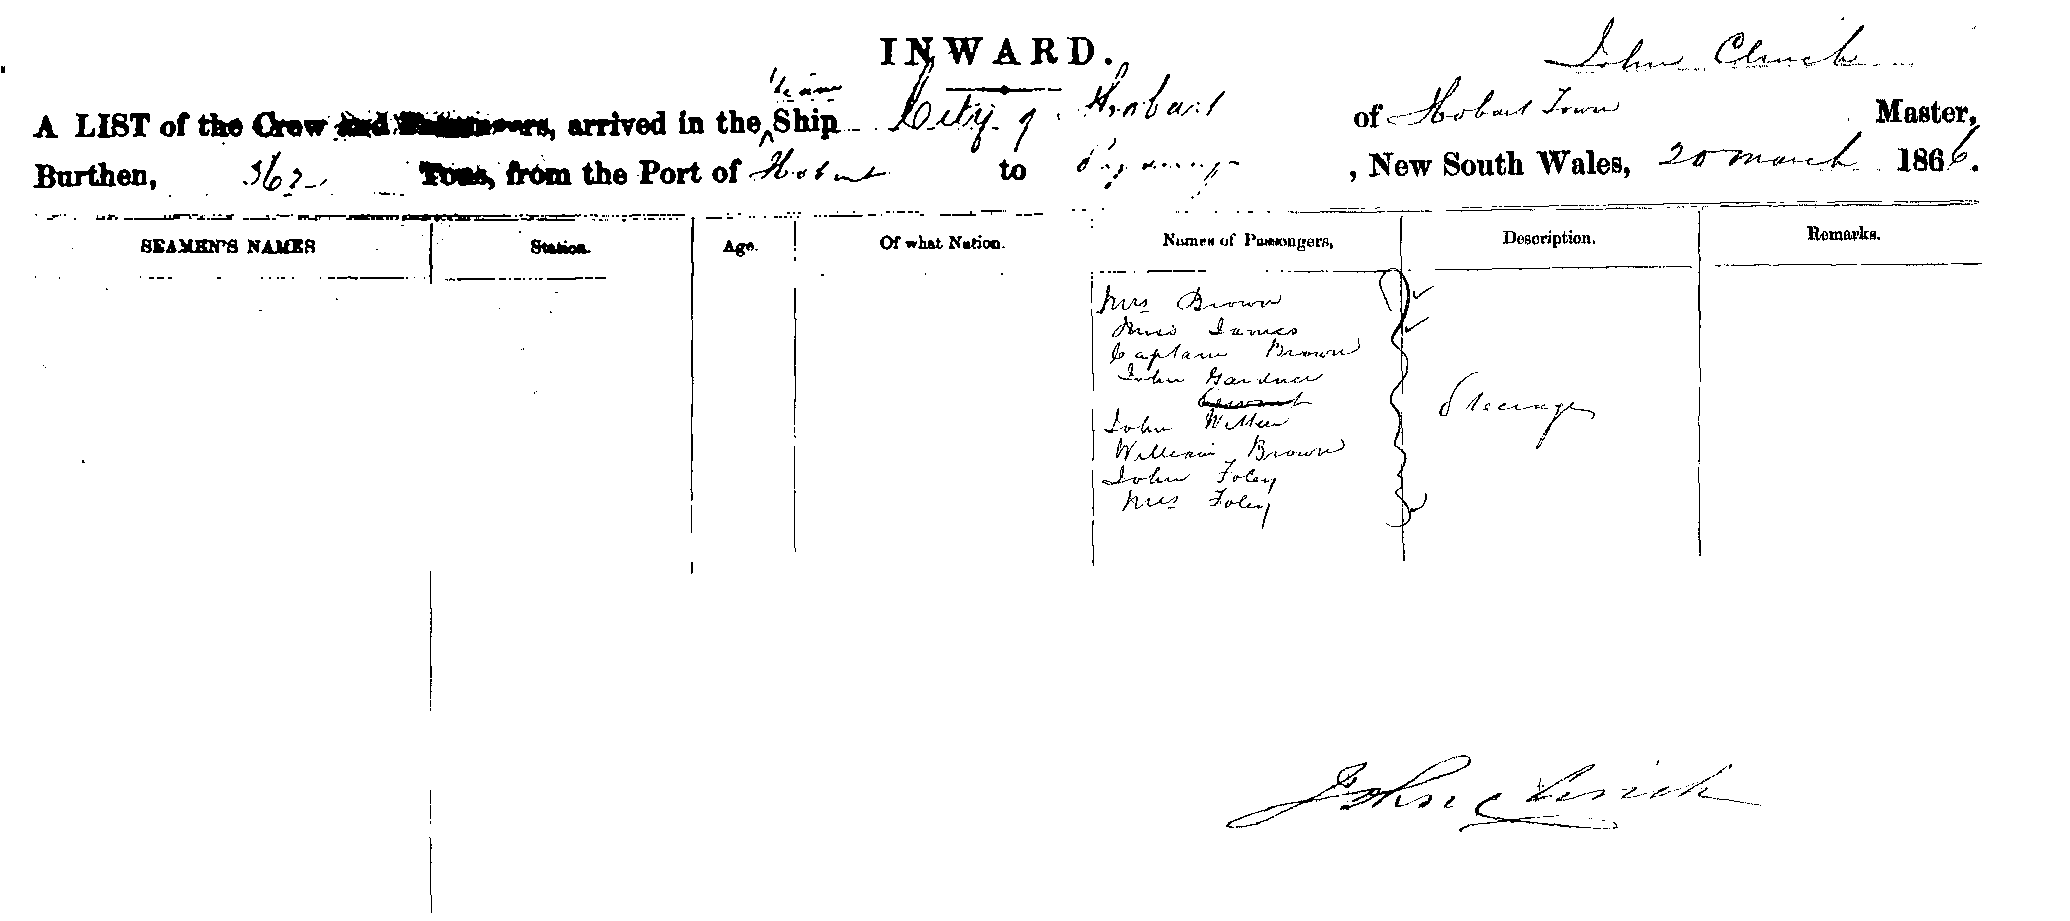 INWARD.
John Clinch
Steam
A LIST of the Crew and Passengers, arrived in the Ship City of Hobart of Hobart Town Master,
Burthen, 362 Tons, from the Port of Hobart to Sydney, New South Wales, 20 March 1866.
SEAMEN'S NAMES Station. Age. Of what Nation. Names of Passengers, Description. Remarks.
Mrs Brown
Miss James
Captain Brown
John Gardner
Servant
Steerage
John
William Brown
John Foley
Mrs Foley
John Clinch